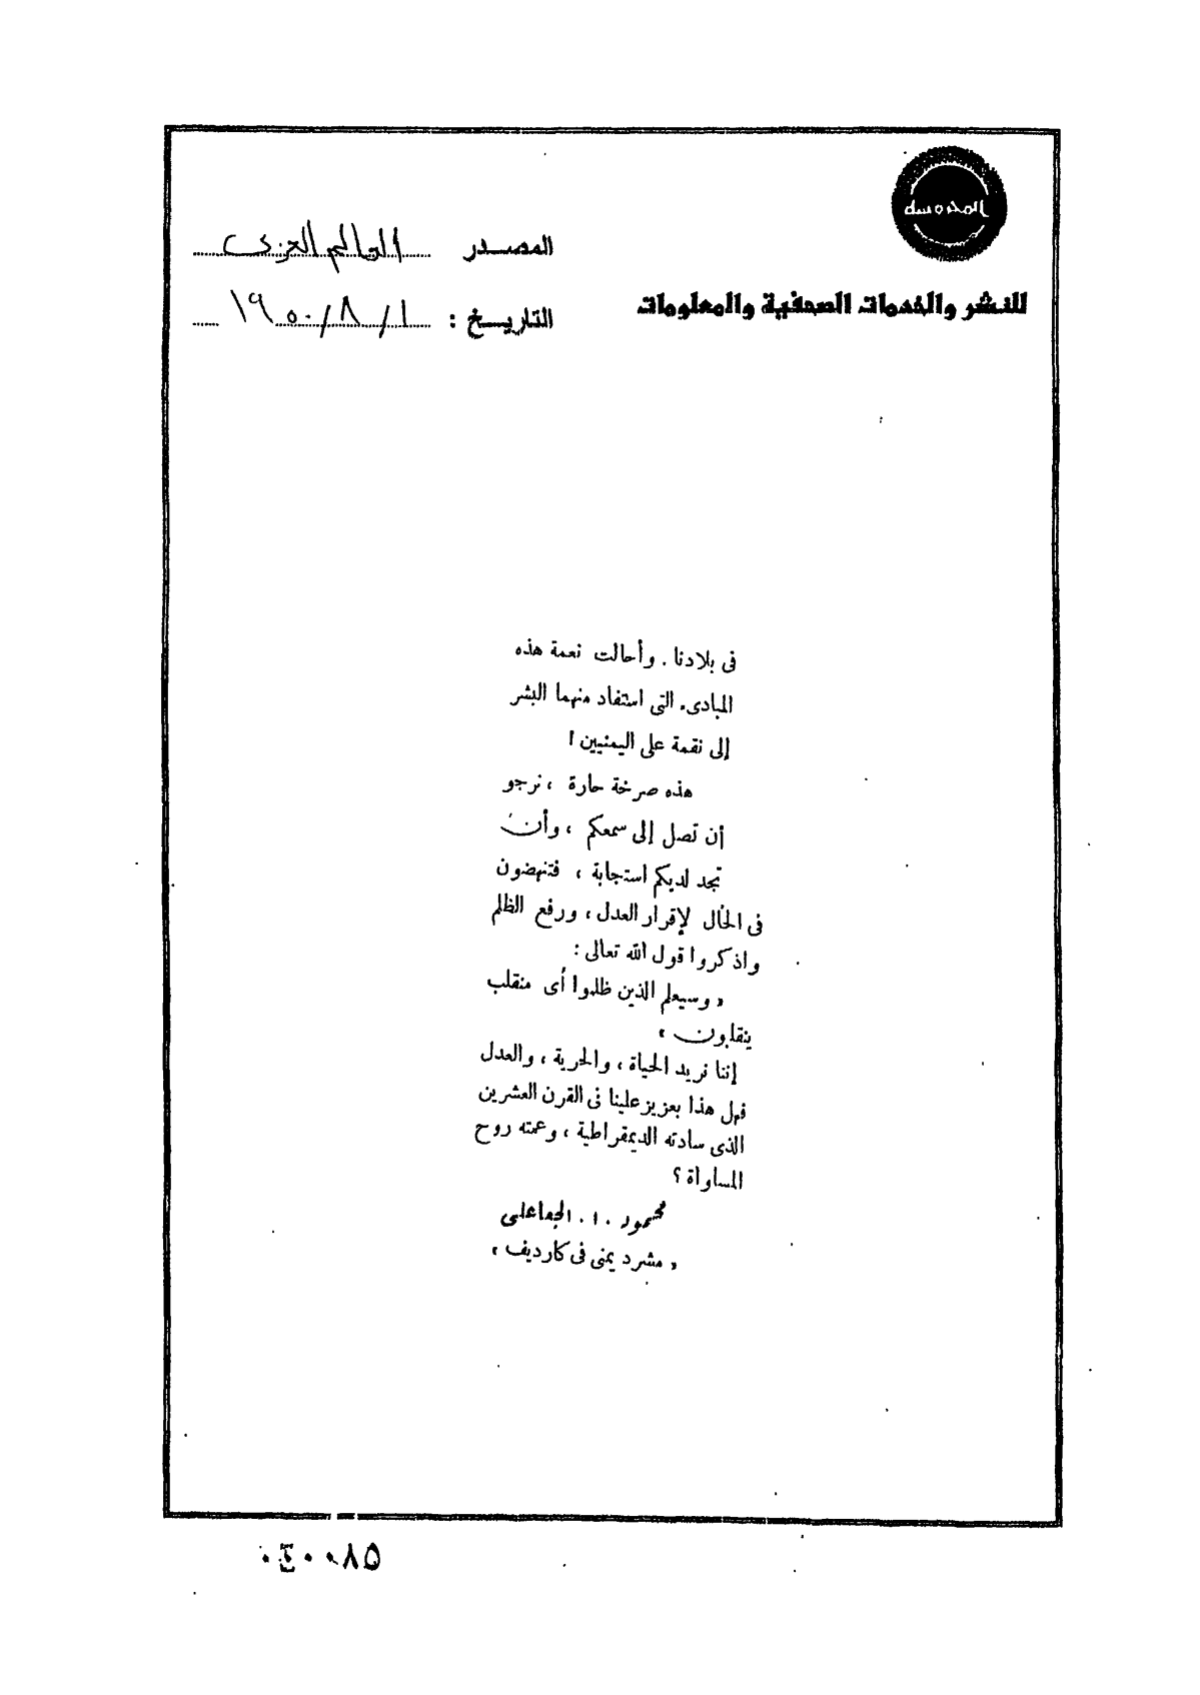 المحروسة
للنشر والخدمات الصحفية والمعلومات
المصدر العالم العربى
التاريخ : ١ / ٨ / ١٩٥٠
فى بلادنا . وأحالت نعمة هذه
المبادىء التى استفاد منهما البشر
إلى نقمة على اليمنيين !
هذه صرخة حارة ، نرجو
أن تصل إلى سمعكم ، وأن
تجد لديكم استجابة ، فتنهضون
فى الحال لإقرار العدل ، ورفع الظلم
واذكروا قول الله تعالى :
« وسيعلم الذين ظلموا أى منقلب
ينقلبون »
إننا نريد الحياة ، والحرية ، والعدل
فهل هذا بعزيز علينا فى القرن العشرين
الذى سادته الديمقراطية ، وعمته روح
المساواة ؟
محمود . ا . الجماعلى
« مشرد يمنى فى كارديف »